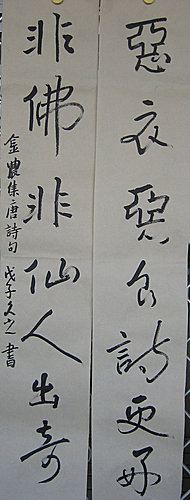 惡衣惡食詩更好
非佛非仙人出奇
金農集唐詩句 戊子久之書